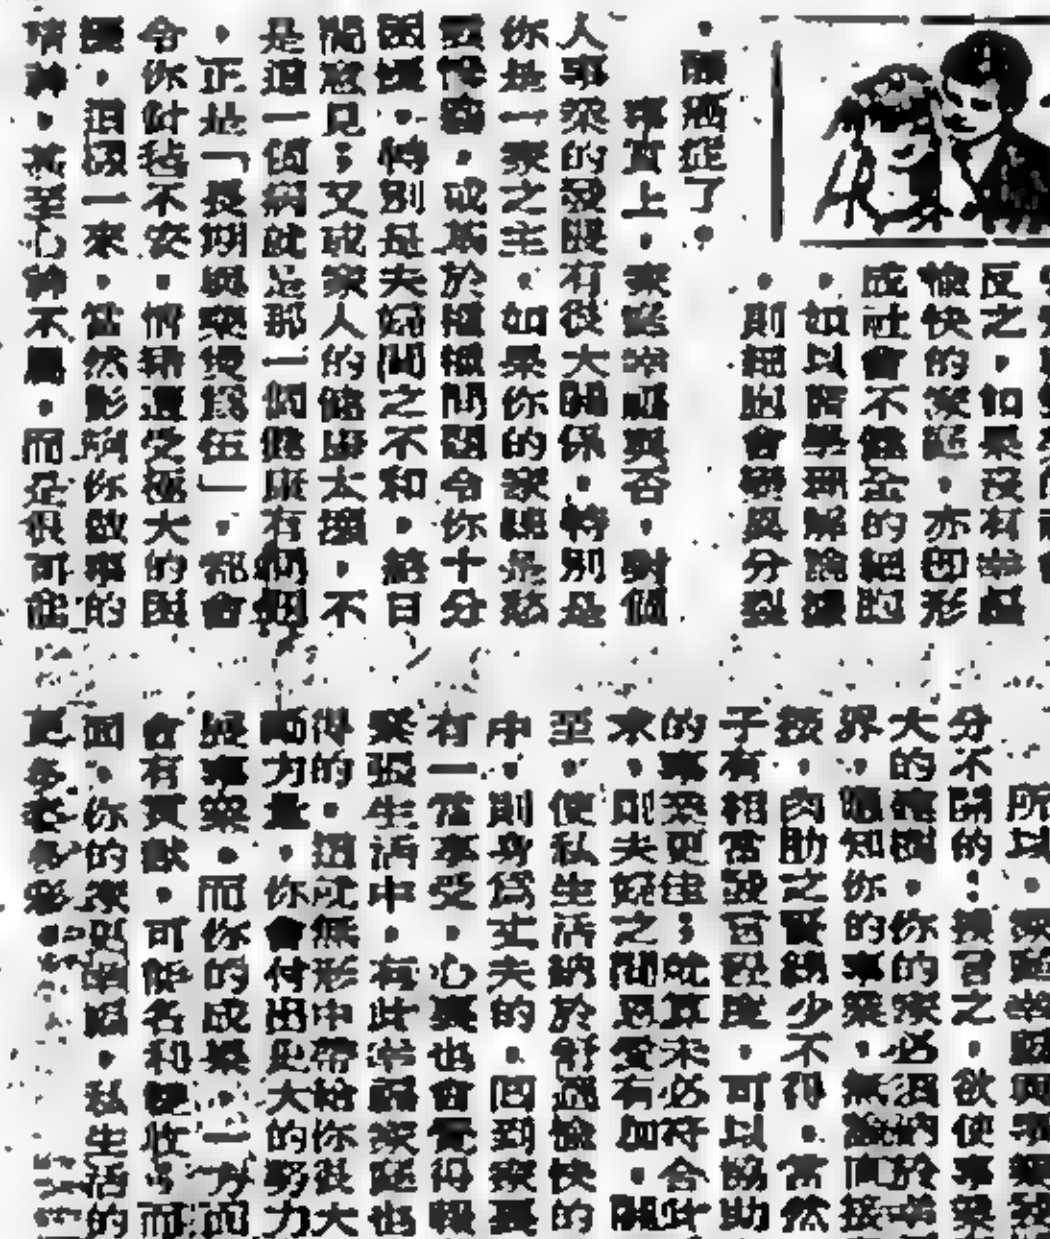 反之，如果沒有幸
愉快的家庭，亦即形
成社會不健全的細胞
，如以醫學理解論據
，則細胞會變異分裂
，頭痛症了，
事實上，家庭幸福與否，對個
人事業的發展有很大關係，特別是
你是一家之主，如果你的家眷是愁
雲慘霧，或基於種種問題令你十分
困擾，特別是夫婦間之不和，終日
鬧意見；又或家人的健康太壞，不
是這一個病就是那一個健康有問
，正是「長期與藥煲為伍」，都會
令你坐氈不安，情緒遭受極大的困
擾，這樣一來，當然影響你做事的
精神，甚至心神不屬，而是很可能
所以，家庭幸
分不開的；換言之，欲使事業
大的，你的家必須納於幸
界，知你的事業，無論間接
，內助之賢，少不得，當然
子有相當教育程度，可以協助
的事業更佳；就算未必符合此
求，則夫婦之間恩愛有加，關
至，使私生活納於舒適愉快的
中，則身為丈夫的，回到家裏
有一當事受，心裏也會覺得輕
緊張生活中，有此幸福家庭也
得的，這就無形中帶給你很大
動力量，你會付出更大的努力
展事業，而你的成，一方面
會有貢獻，可能名利雙收；而
面，你的家更溫暖，私生活的
更多